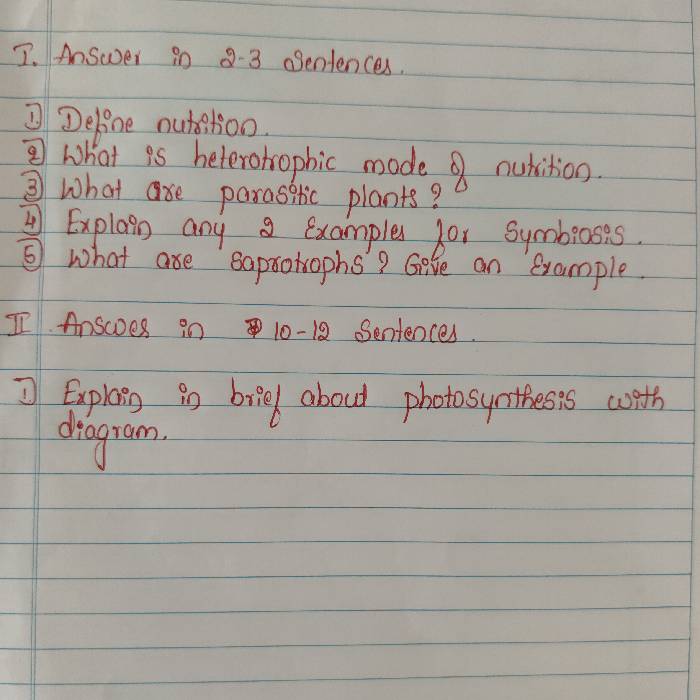 I. Answer in 2-3 Sentences.
1) Define nutrition.
2) What is heterotrophic mode of nutrition.
3) What are parasitic plants?
4) Explain any 2 Examples for Symbiosis.
5) What are saprotrophs? Give an Example.
II Answer in 10-12 Sentences.
1) Explain in brief about photosynthesis with
diagram.